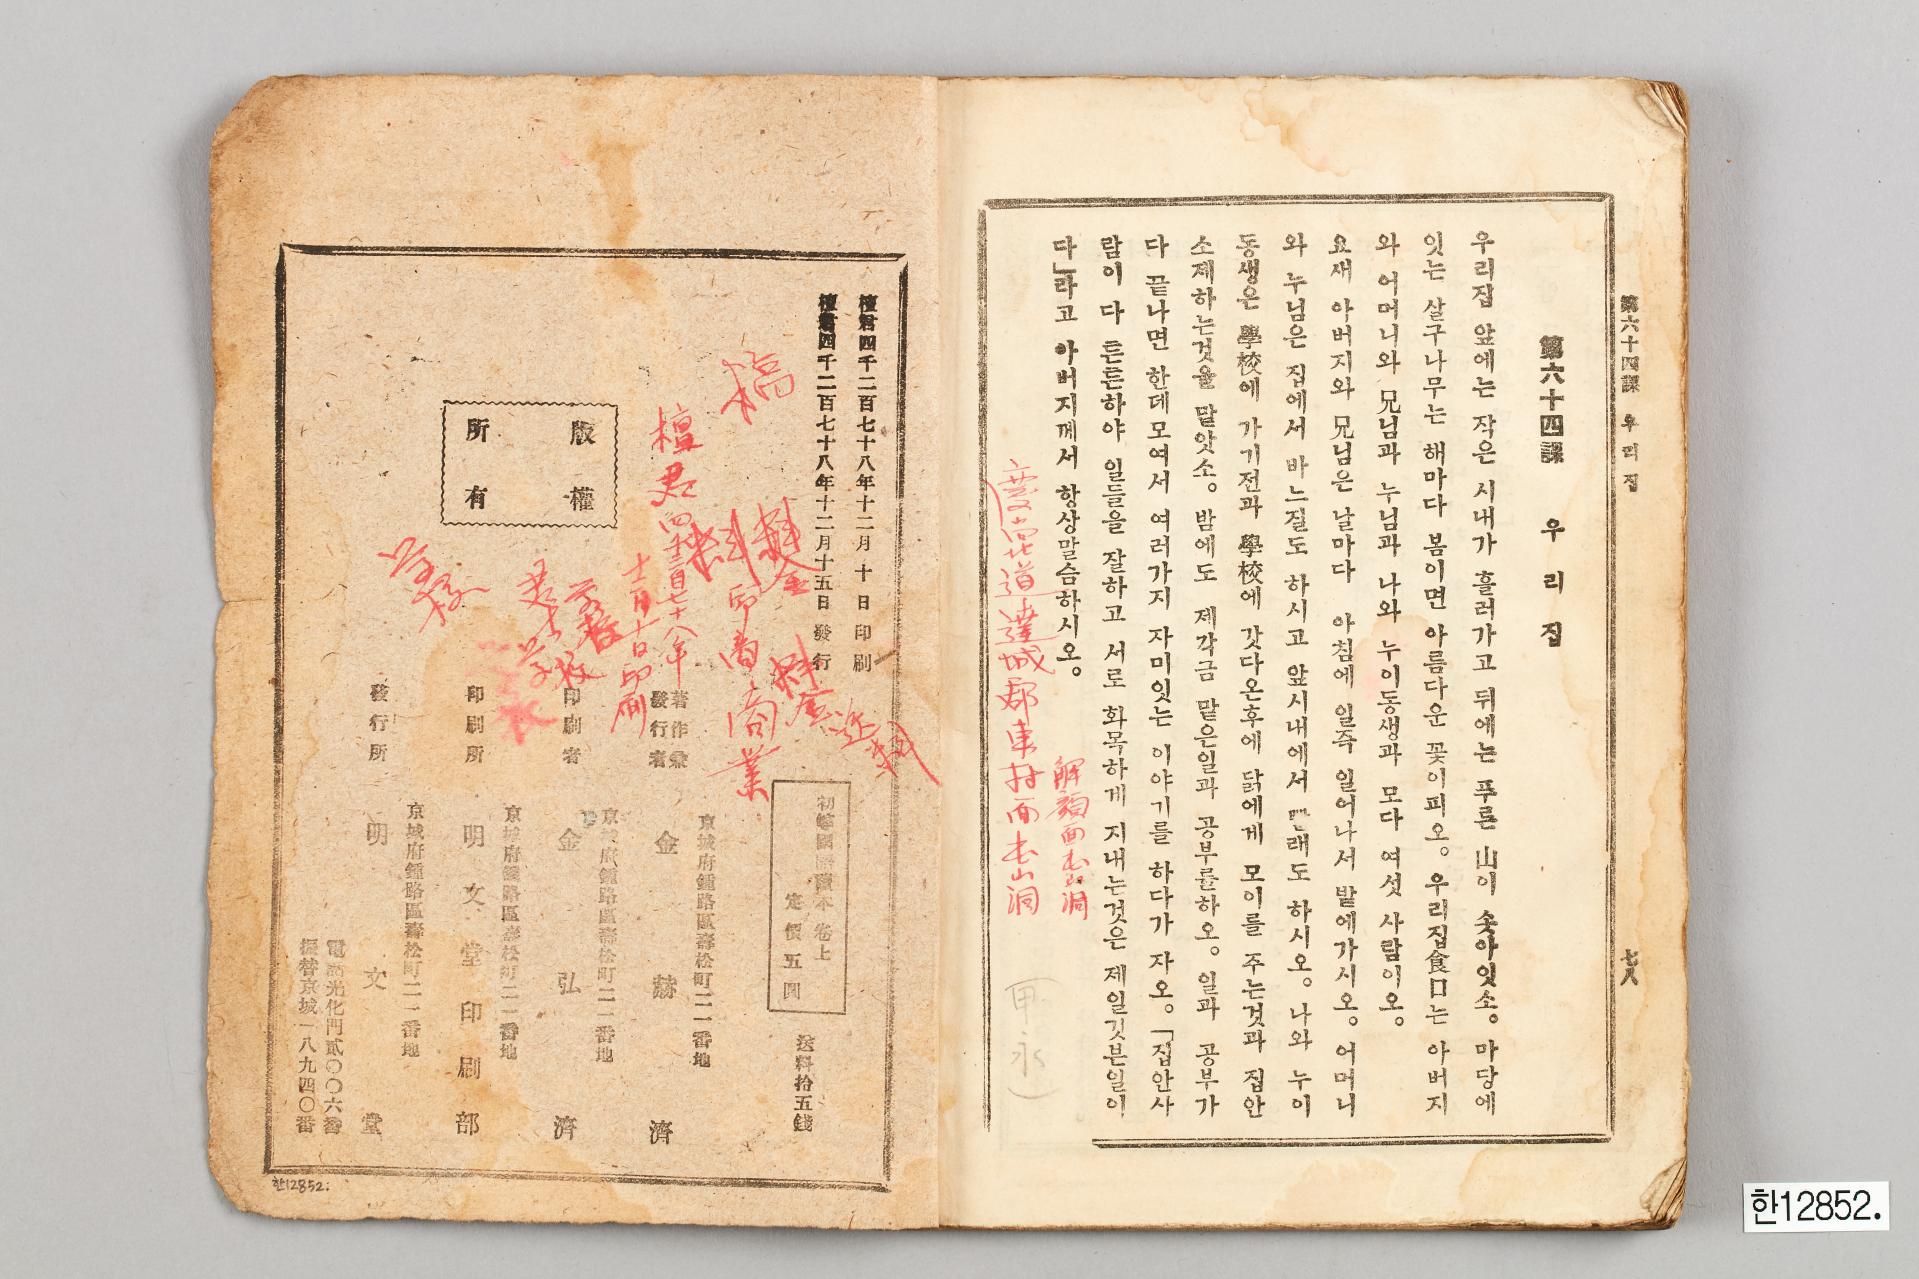 第六十四課 우리집
七八
第六十四課 우리집
우리집 앞에는 작은 시내가 흘러가고 뒤에는 푸른 山이 솟아잇소。마당에
잇는 살구나무는 해마다 봄이면 아름다운 꽃이피오。우리집食口는 아버지
와 어머니와 兄님과 누님과 나와 누이동생과 모다 여섯 사람이오。
요새 아버지와 兄님은 날마다 아침에 일즉 일어나서 밭에가시오。어머니
와 누님은 집에서 바느질도 하시고 앞시내에서 래도 하시오。나와 누이
동생은 學校에 가기전과 學校에 갓다온후에 닭에게 모이를 주는것과 집안
소제하는것을 맡앗소。밤에도 제각금 맡은일과 공부를하오。일과 공부가
다 끝나면 한데모여서 여러가지 자미잇는 이야기를 하다가 자오。「집안사
람이 다 튼튼하야 일들을 잘하고 서로 화목하게 지내는것은 제일깃븐일이
다」라고 아버지께서 항상말슴하시오。
解顔面 洞
慶尙北道達城郡東村面 山洞
甲永
檀君四千二百七十八年十二月十日印刷
檀君四千二百七十八年十二月十五日發行
版權
所有
初等國語讀本 卷上
定價五圓
送料拾五錢
著作兼
發行者
京城府鍾路區壽松町二一番地
金赫濟
印刷者
京城府鍾路區壽松町二一番地
金弘濟
印刷所
京城府鍾路區壽松町二一番地
明文堂印刷部
發行所
京城府鍾路區壽松町二一番地
明文堂
電話光化門貳〇〇六番
振替京城一八九四〇番
檀君
十二月十日印刷
印
商業
한12852.
한12852.